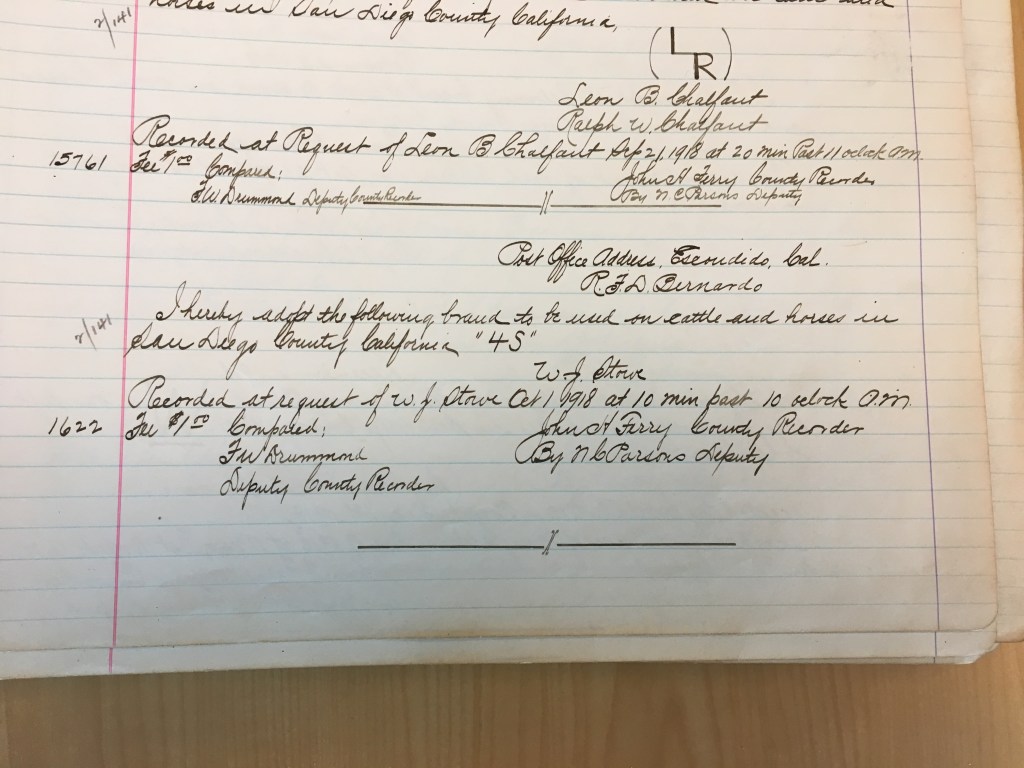 horses in San Diego County California,
2/141
L
R
Leon B. Chalfant
Ralph W. Chalfant
Recorded at Request of Leon B Chalfant Sep 21, 1918 at 20 min Past 11 oclock a.m.
15761 Fee $1.00 Compared; John H Ferry County Recorder
F.W. Drummond Deputy County Recorder By N.C. Parsons Deputy
Post Office Address, Escondido, Cal.
R.F.D. Bernardo
2/141
I hereby adopt the following brand to be used on cattle and horses in
San Diego County California "4S"
W.J. Stowe
Recorded at request of W.J. Stowe Oct 1 1918 at 10 min past 10 oclock a.m.
1622 Fee $1.00 Compared; John H Ferry County Recorder
F W Drummond By N C Parsons Deputy
Deputy County Recorder